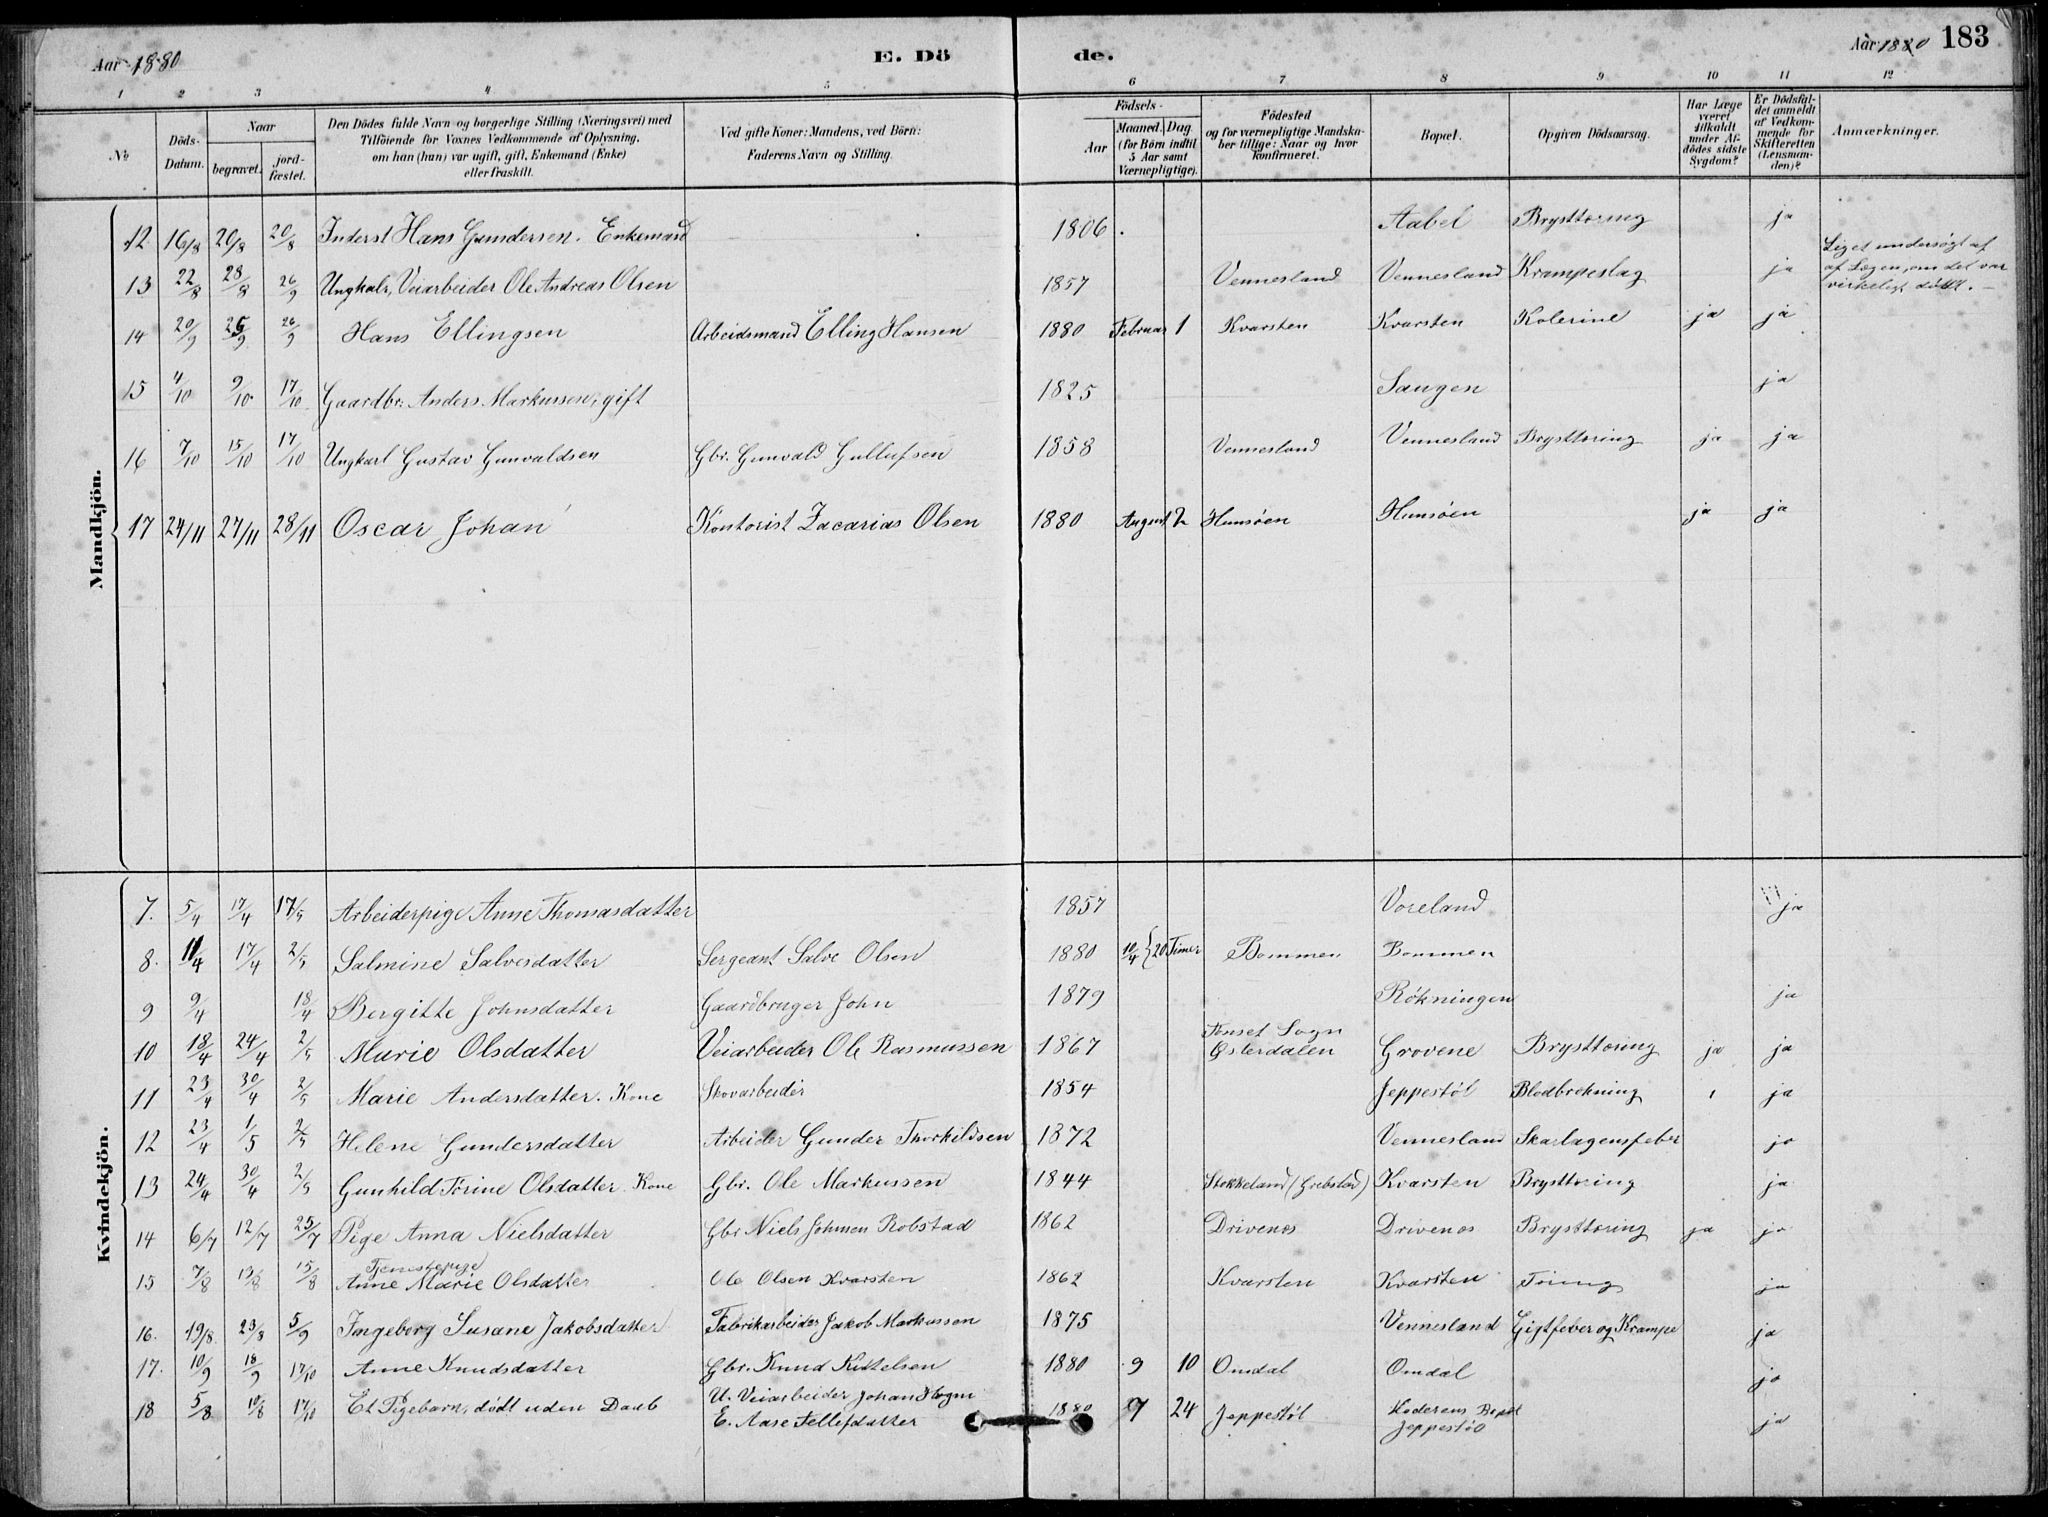 Aar 1880 E. Dö de. Aar 1880 183
1 2 3 4 5 6 7 8 9 10 11 12
№ Döds-Datum. Naar begravet. jordfæstet. Den Dödes fulde Navn og borgerlige Stilling (Næringsvei) med Tilföiende for Voxnes Vedkommende af Oplysning, om han (hun) var ugift, gift, Enkemand (Enke) eller fraskilt. Ved gifte Koner: Mandens, ved Börn: Faderens Navn og Stilling. Födsels- Aar Maaned. Dag. (for Börn indtil 5 Aar samt Værnepligtige). Födested og for værnepligtige Mandskaber tillige: Naar og hvor konfirmeret. Bopæl. Opgiven Dödsaarsag. Har Læge været tilkaldt under Afdödes sidste Sygdom? Er Dödsfaldet anmeldt af Vedkommende for Skifteretten (Lensmanden)? Anmærkninger.
Mandkjön.
12 16/8 20/8 20/8 Inderst Hans Gundersen. Enkemand 1806 Aabel Brysttæring ja
13 22/8 28/8 26/9 Ungkalr, Veiarbeider Ole Andreas Olsen 1857 Vennesland Vennesland Krampeslag ja Liget undersøgt af af Lægen, om det var virkeligt dødt. —
14 20/9 25/9 26/9 Hans Ellingsen Arbeidsmand Elling Hansen 1880 Februar 1 Kvarsten Kvarsten Kolerine ja ja
15 4/10 9/10 17/10 Gaardbr. Anders Markussen, gift 1825 Saugen ja
16 7/10 15/10 17/10 Ungkarl Gustav Gunvaldsen Gbr. Gunvald Gullufsen 1858 Vennesland Vennesland Brysttæring ja ja
17 24/11 27/11 28/11 Oscar Johan Kontorist Zacarias Olsen 1880 August 2 Hunsøen Hunsøen ja ja
Kvindekjön.
7. 5/4 17/4 17/5 Arbeiderpige Anne Thomasdatter 1857 Voreland ja
8. 11/4 17/4 2/5 Salmine Salvesdatter Sergeant Salve Olsen 1880 10/4 {20 Timer Bommen Bommen
9 9/4 18/4 Bergitte Johnsdatter Gaardbruger John 1879 Røkningen ja
10 18/4 24/4 2/5 Marie Olsdatter Veiarbeider Ole Rasmussen 1867 Tønset Sogn Østerdalen Grovene Brysttæring ja ja
11 23/4 30/4 2/5 Marie Andersdatter. Kone Skovarbeider 1854 Jeppestøl Blodbrækning ja
12 23/4 1/5 2/5 Helene Gundersdatter Arbeider Gunder Thorkildsen 1872 Vennesland Skarlagensfeber ja
13 24/4 30/4 2/5 Gunhild Trine Olsdatter. Kone Gbr. Ole Markussen 1844 Stokkeland (Grebstad) Kvarsten Brysttæring ja
14 6/7 12/7 25/7 Pige Anna Nielsdatter Gbr Niels Johnsen Robstad 1862 Drivenes Drivenes Brysttæring ja ja
15 7/8 13/8 15/8 Tjenestepige Anne Marie Olsdatter Ole Olsen Kvarsten 1862 Kvarsten Kvarsten Tæring ja
16. 19/8 23/8 5/9 Ingeborg Susane Jakobsdatter Fabrikarbeider Jakob Markussen 1875 Vennesland Gigtfeber og Krampe ja
17. 10/9 18/9 17/10 Anne Knudsdatter Gbr. Knud Kittelsen 1880 9 10 Omdal Omdal ja
18 5/8 10/8 17/10 Et Pigebarn, dødt uden Daab U. Veiarbeider Johan E. Aase Tellefdatter 1880 7 24 Jeppestøl Moderens Bopæl Jeppestøl ja